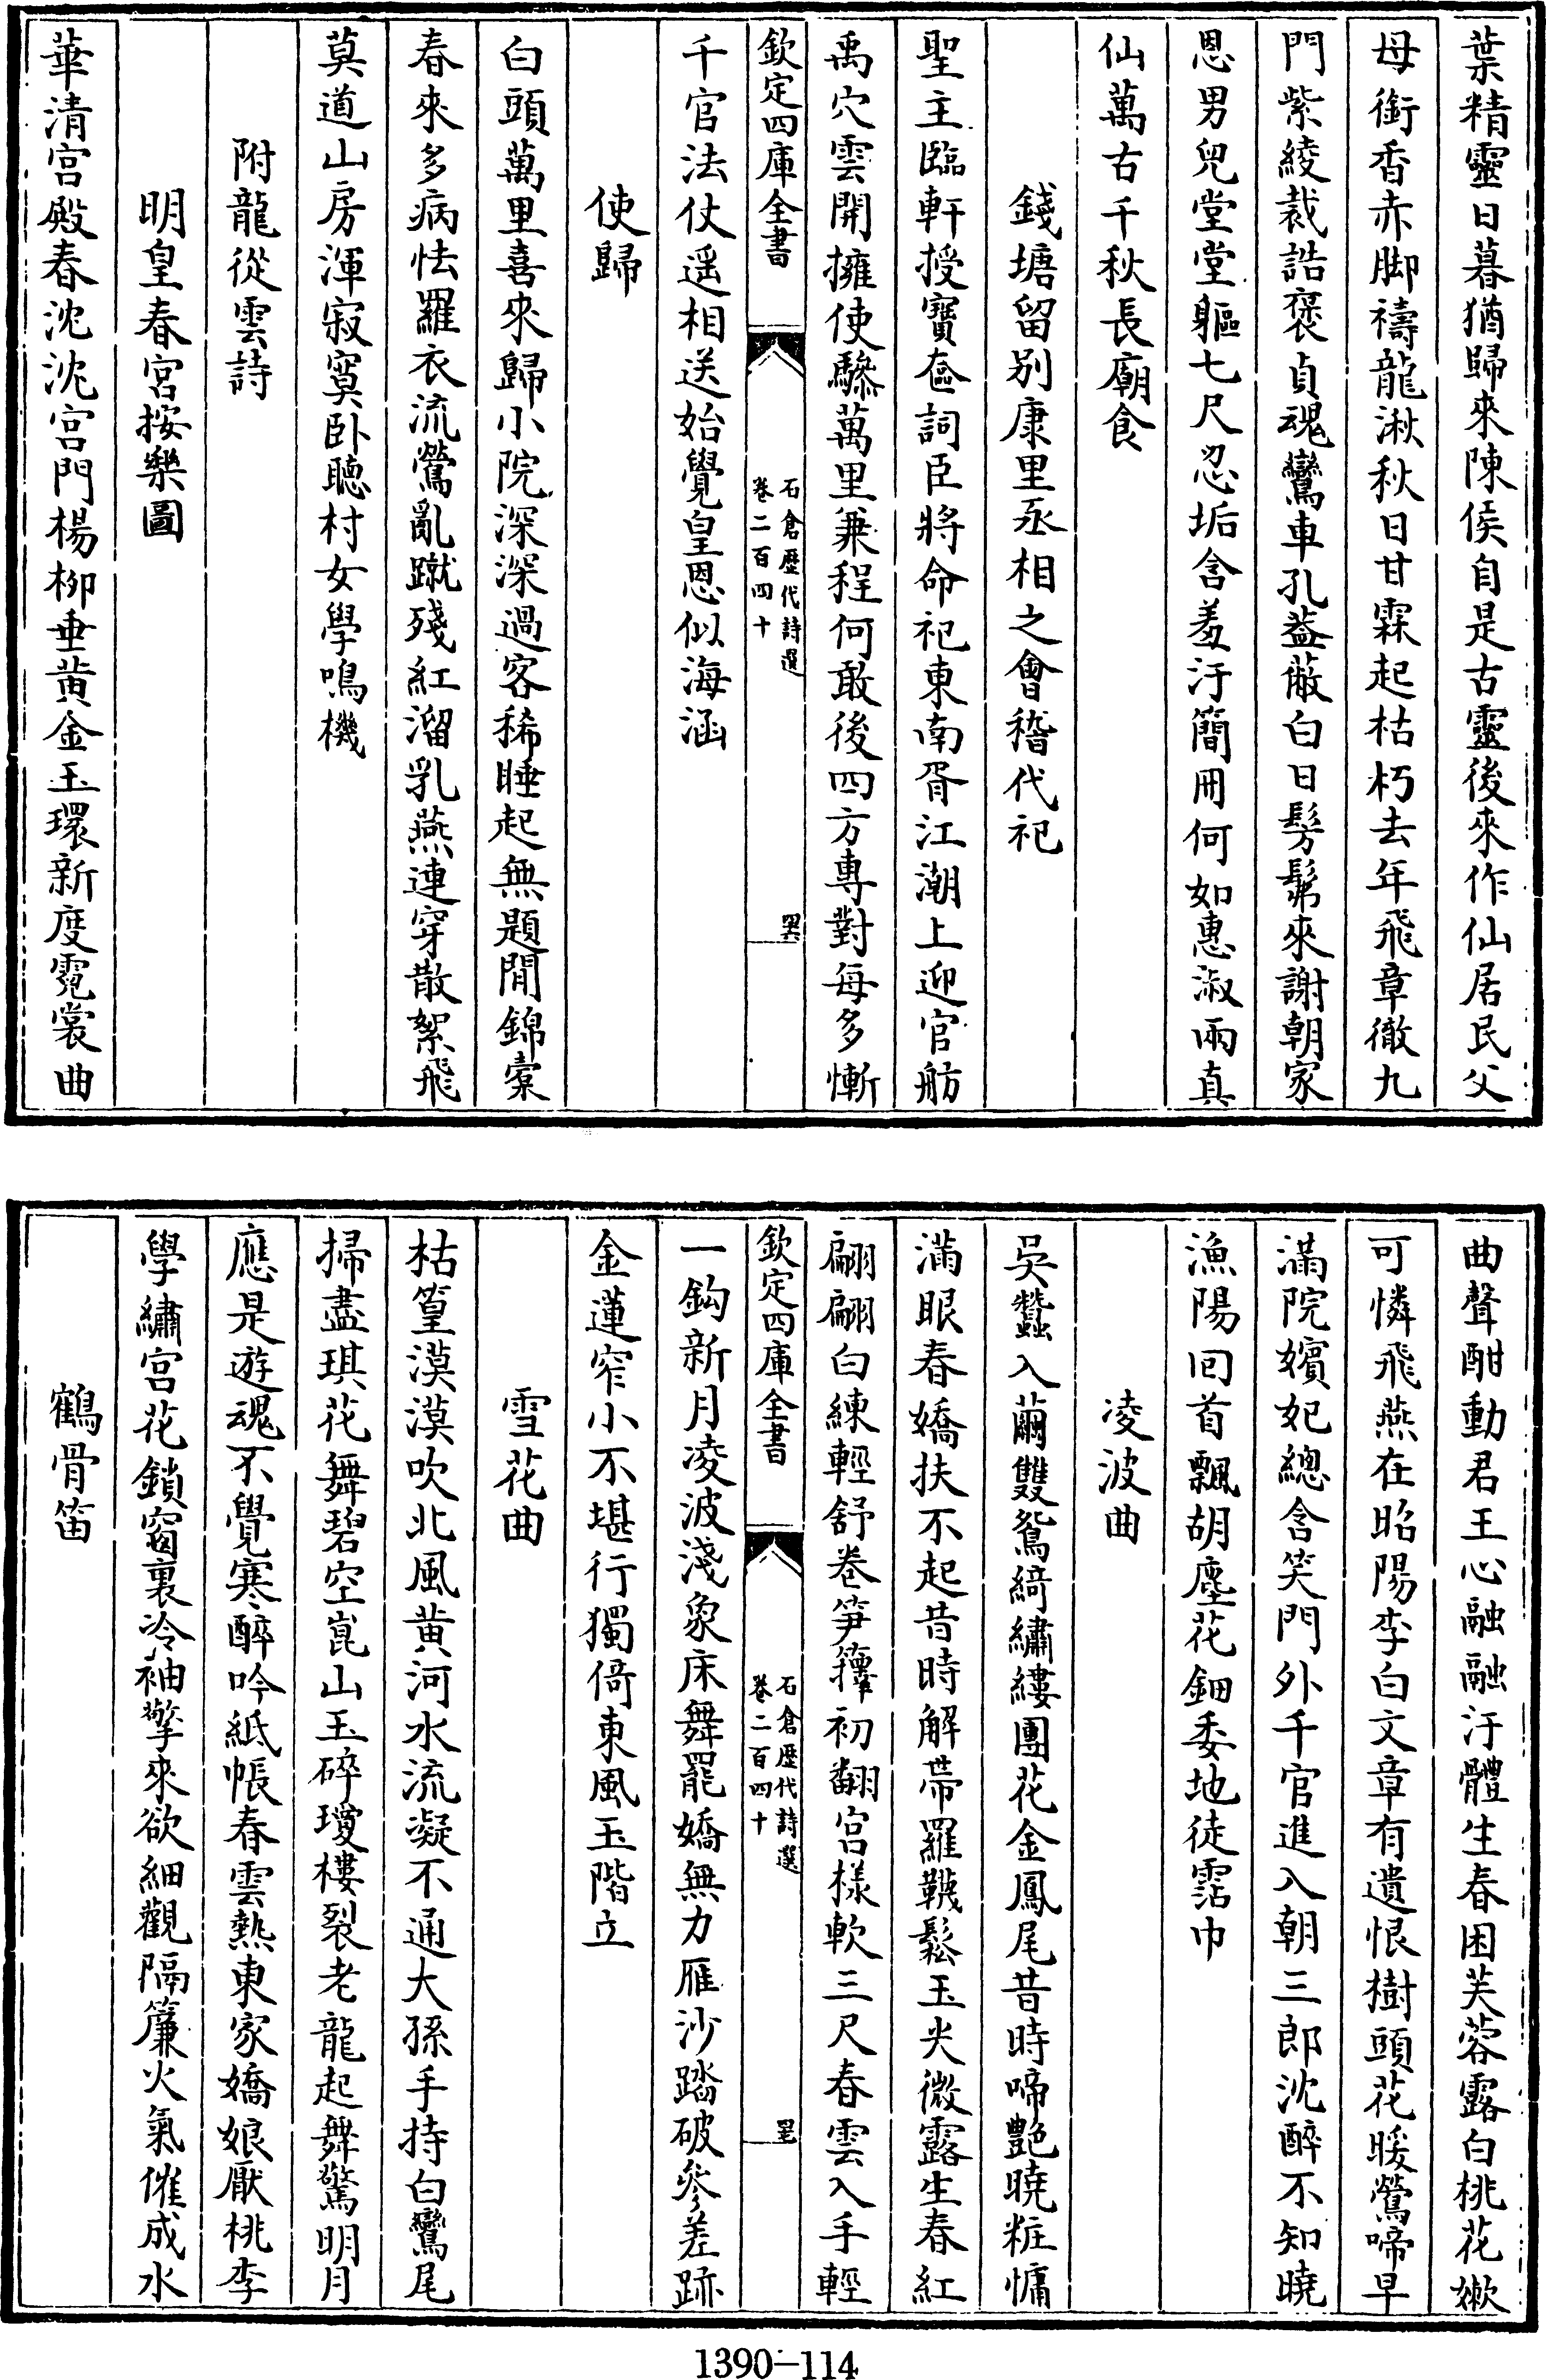 葉精靈日暮猶歸來陳侯自是古靈後來作仙居民父
母銜香赤脚禱龍湫秋日甘霖起枯朽去年飛章徹九
門紫綾裁誥褒貞魂鸞車孔蓋蔽白日髣髴來謝朝家
恩男兒堂堂軀七尺忍垢含羞汙簡冊何如惠淑兩真
仙萬古千秋長廟食
錢塘留别康里丞相之會稽代祀
聖主臨軒授寶奩詞臣將命祀東南胥江潮上迎官舫
禹穴雲開擁使驂萬里兼程何敢後四方專對每多慚
欽定四庫全書
石倉歷代詩選
卷二百四十
千官法仗遥相送始覺皇恩似海涵
使歸
白頭萬里喜來歸小院深深過客稀睡起無題閒錦橐
春來多病怯羅衣流鶯亂蹴殘紅溜乳燕連穿散絮飛
莫道山房渾寂寞卧聽村女學鳴機
附龍從雲詩
明皇春宮按樂圖
華清宮殿春沈沈宮門楊柳垂黄金玉環新度霓裳曲
曲聲酣動君王心融融汙體生春困芙蓉露白桃花嫰
可憐飛燕在昭陽李白文章有遺恨樹頭花暖鶯啼早
滿院嬪妃總含笑門外千官進入朝三郎沈醉不知曉
漁陽回首飄胡塵花鈿委地徒霑巾
凌波曲
吳蠶入繭雙鴛綺繡縷團花金鳳尾昔時啼艷曉粧慵
滿眼春嬌扶不起昔時解帶羅韈鬆玉尖微露生春紅
翩翩白練輕舒卷笋籜初翻宫樣軟三尺春雲入手輕
欽定四庫全書
石倉歷代詩選
卷二百四十
一鈎新月凌波淺象床舞罷嬌無力雁沙踏破參差跡
金蓮窄小不堪行獨倚東風玉階立
雪花曲
枯篁漠漠吹北風黄河水流凝不通大孫手持白鸞尾
掃盡琪花舞碧空崑山玉碎瓊樓裂老龍起舞驚明月
應是遊魂不覺寒醉吟紙帳春雲熱東家嬌娘厭桃李
學繡宫花鎖窗裏冷袖擎來欲細觀隔簾火氣催成水
鶴骨笛
1390-114